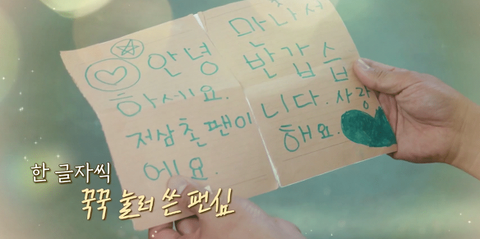 안녕
하세요.
저삼촌팬이
에요.
마나서
반갑습
니다. 사랑
해요.
한 글자씩
꾹꾹 눌러 쓴 팬심